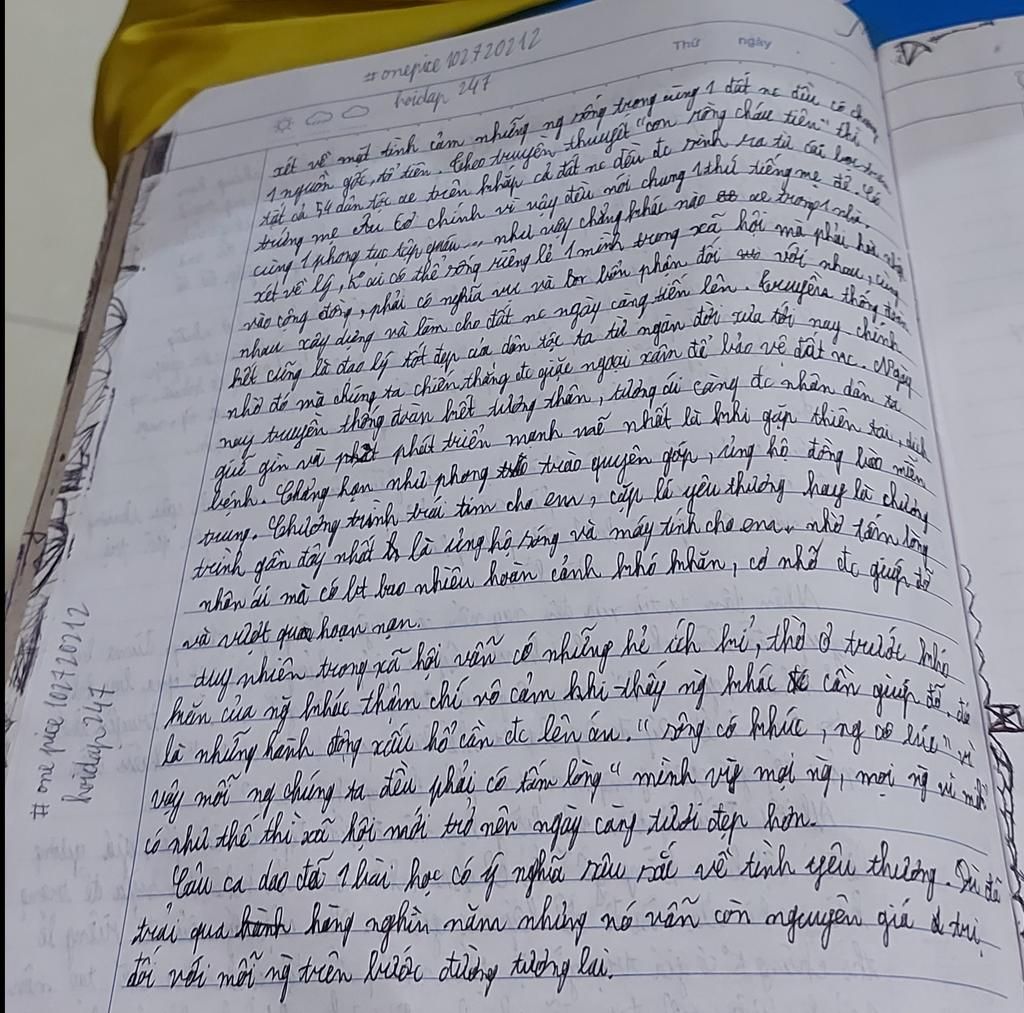 #onepice102720212
hoidap 247
Thứ ngày
xét về mặt tình cảm những ng sống trong cùng 1 đất nc đều có chung
1 nguồn gốc, tổ tiên. Theo truyền thuyết "con rồng cháu tiên" thì
tất cả 54 dân tộc ae trên khắp cả đất nc đều đc sinh ra từ cái bọc trăm
trứng mẹ Âu Cơ chính vì vậy đều nói chung 1 thứ tiếng mẹ đẻ, có
cùng 1 phong tục tập quán... như vậy chẳng khác nào ae trong 1 nhà
xét về lý, k ai có thể sống riêng lẻ 1 mình trong xã hội mà phải hòa nhập
vào cộng đồng, phải có nghĩa vụ và bổn phận đối với nhau, cùng
nhau xây dựng và làm cho đất nc ngày càng tiến lên. Truyền thống đoàn
kết cũng là đạo lý tốt đẹp của dân tộc ta từ ngàn đời xưa tới nay chính
nhờ đó mà chúng ta chiến thắng đc giặc ngoại xâm để bảo vệ đất nc. Ngày
nay truyền thống đoàn kết tương thân, tương ái càng đc nhân dân ta
giữ gìn và phát triển mạnh mẽ nhất là khi gặp thiên tai, dịch
bệnh. Chẳng hạn như phong trào quyên góp, ủng hộ đồng bào miền
trung. Chương trình trái tim cho em, cặp lá yêu thương hay là chương
trình gần đây nhất là ủng hộ sóng và máy tính cho em. nhờ tấm lòng
nhân ái mà có bao nhiêu hoàn cảnh khó khăn, cơ nhỡ đc giúp đỡ
và vượt qua hoạn nạn.
Tuy nhiên trong xã hội vẫn có những kẻ ích kỉ, thờ ơ trước khó
khăn của ng khác thậm chí vô cảm khi thấy ng khác cần giúp đỡ. đó
là những hành động xấu hổ cần đc lên án. "sông có khúc, ng có lúc" vì
vậy mỗi ng chúng ta đều phải có tấm lòng "mình vì mọi ng, mọi ng vì mình
có như thế thì xã hội mới trở nên ngày càng tươi đẹp hơn.
Câu ca dao để 1 bài học có ý nghĩa sâu sắc về tình yêu thương. Dù đã
trải qua hàng nghìn năm nhưng nó vẫn còn nguyên giá trị
đối với mỗi ng trên bước đường tương lai.
#onepice102720212
hoidap247